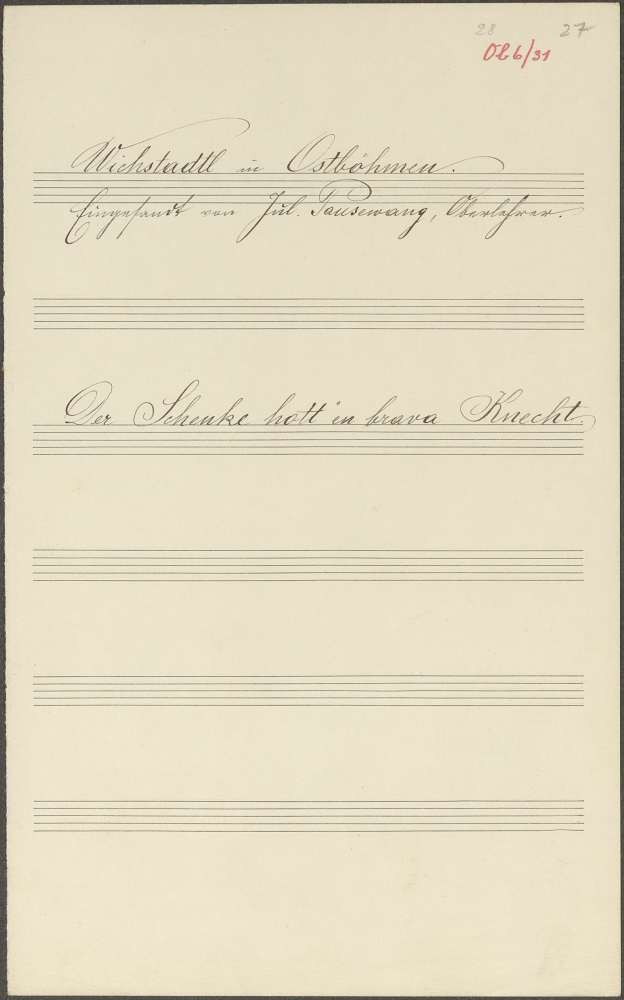 28 27
Ob6/31
Wichstadtl in Ostböhmen.
Eingesandt von Jul. Pausewang, Oberlehrer.
Der Schenke hott 'en brava Knecht.